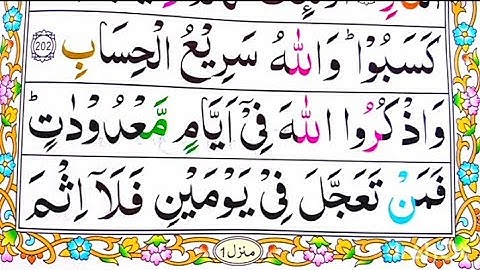 كَسَبُوْا ؕ وَاللّٰهُ سَرِيْعُ الْحِسَابِ ﴿202﴾
وَاذْكُرُوا اللّٰهَ فِيْۤ اَيَّامٍ مَّعْدُوْدٰتٍ ؕ
فَمَنْ تَعَجَّلَ فِيْ يَوْمَيْنِ فَلَاۤ اِثْمَ
منزل 1